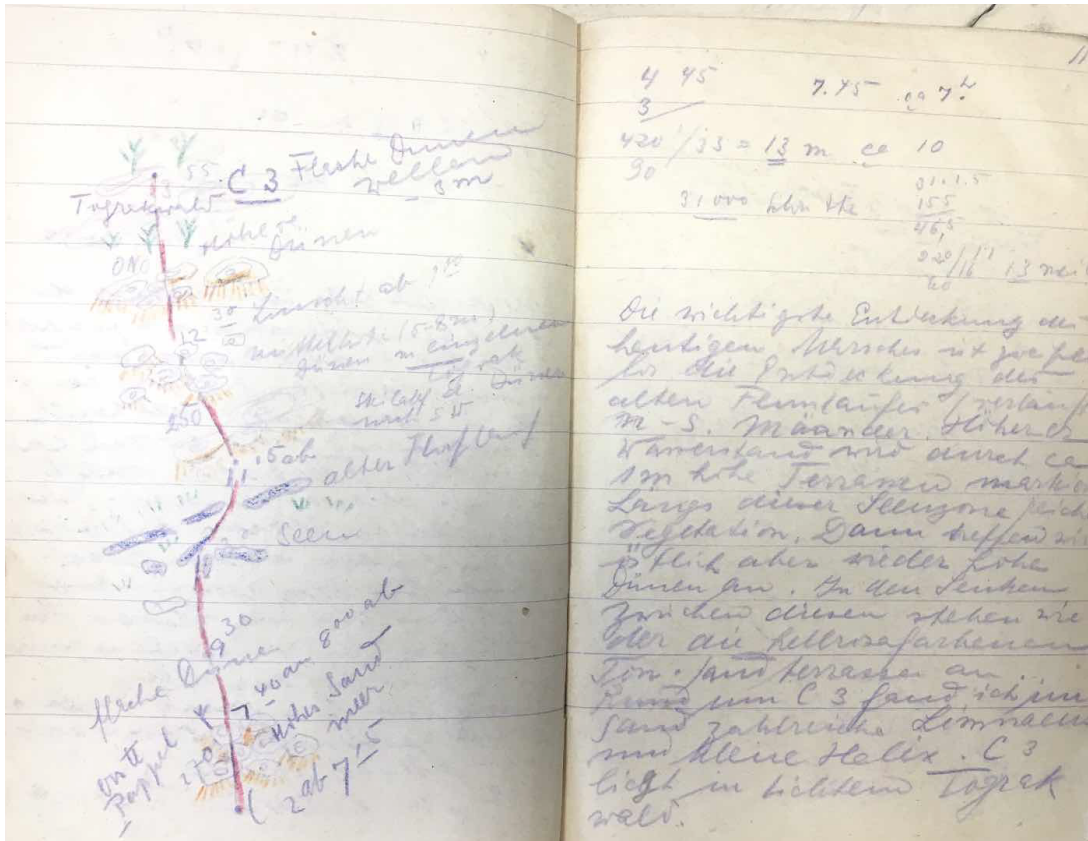 55 C 3 Flache Dünen
wellen
3 m
Tograkwald
Hohe
Dünen
ONO
12 30 ab
mittelhohe (5-8 m)
Dünen m einzelnen
Dünen
nach SW
250
15 ab
alter Flußlauf
Seen
9 30
flache Dünen
7 40 an 8 00 ab
Hohes Sand
meer
erste
Pappel
270
C 2 ab 7 15
11
4 45
7.45 ca 7 h
3
420 / 33 = 13 m ca 10
90
31.1.5
31000 Schritte
155
46,5
13
Die wichtigste Entdeckung des
heutigen Marsches ist
los die Entdeckung des
alten Flusslaufes
N-S. Mäander. Höherer
Wasserstand wird durch ca
1m hohe Terrassen
Längs dieser Seenzone
Vegetation. Dann treffen wir
östlich aber wieder hohe
Dünen an. In den Senken
zwischen diesen stehen wie
der die hellrosafarbenen
Ton- Sandterrassen an.
Rund um C 3 fand ich im
Sand zahlreiche Limnaeen
und kleine Helix. C 3
liegt in lichtem Tograk
wald.